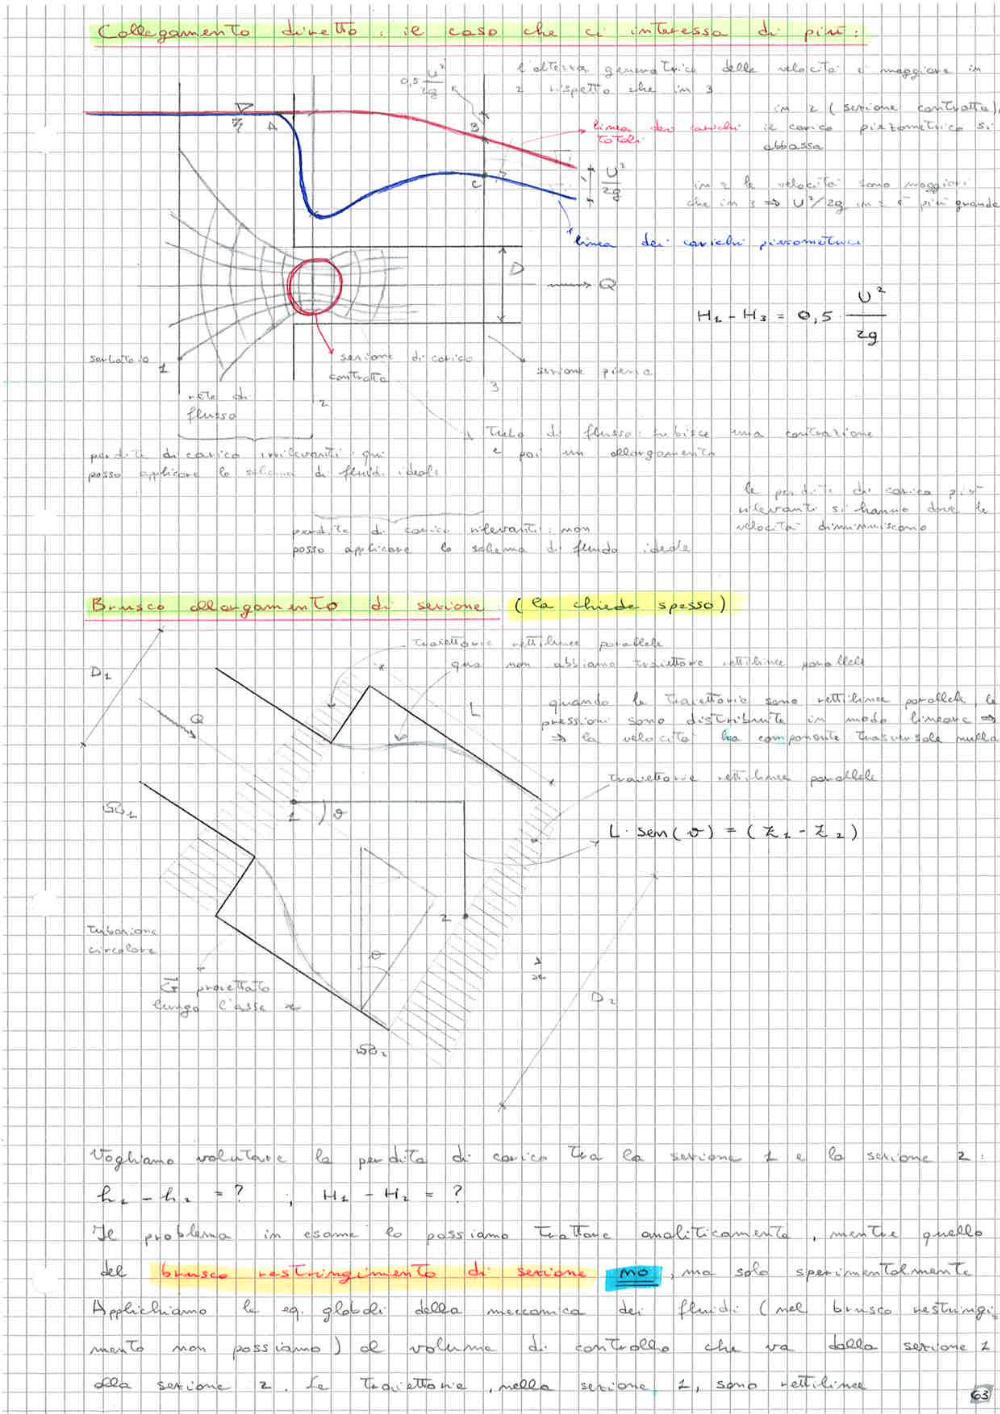 Collegamento diretto: il caso che ci interessa di più:
0,5 U²/2g
l'altezza generatrice della velocità è maggiore in
2 rispetto che in 3
in 2 (sezione contratta),
linea dei carichi totali
il carico piezometrico si
abbassa
A
3
C
U²/2g
in 2 le velocità sono maggiori
che in 3 ⇒ U²/2g in 2 è più grande
linea dei carichi piezometrici
D
Q
H₁ - H₃ = 0,5 U²/2g
serbatoio
1
sezione di carico
contratta
sezione piena
3
2
rete di
flusso
Tubo di flusso: subisce una contrazione
e poi un allargamento
perdite di carico irrilevanti: qui
posso applicare lo schema di fluidi ideali
le perdite di carico più
rilevanti si hanno dove le
velocità diminuiscono
perdite di carico rilevanti: non
posso applicare lo schema di fluido ideale
Brusco allargamento di sezione (la chiede spesso)
traiettorie rettilinee parallele
qua non abbiamo traiettorie rettilinee parallele
D₁
Q
L
quando le traiettorie sono rettilinee parallele, le
pressioni sono distribuite in modo lineare ⇒
⇒ la velocità ha componente trasversale nulla
traiettorie rettilinee parallele
Ω₁
1
θ
L · sen(θ) = (z₁ - z₂)
2
Tubazione
circolare
θ
G proiettato
lungo l'asse x
D₂
Ω₂
Vogliamo valutare la perdita di carico tra la sezione 1 e la sezione 2:
h₁ - h₂ = ? ; H₁ - H₂ = ?
Il problema in esame lo possiamo trattare analiticamente, mentre quello
del brusco restringimento di sezione no, ma solo sperimentalmente
Applichiamo le eq. globali della meccanica dei fluidi (nel brusco restringi
mento non possiamo) al volume di controllo che va dalla sezione 1
alla sezione 2. Le traiettorie, nella sezione 1, sono rettilinee
63